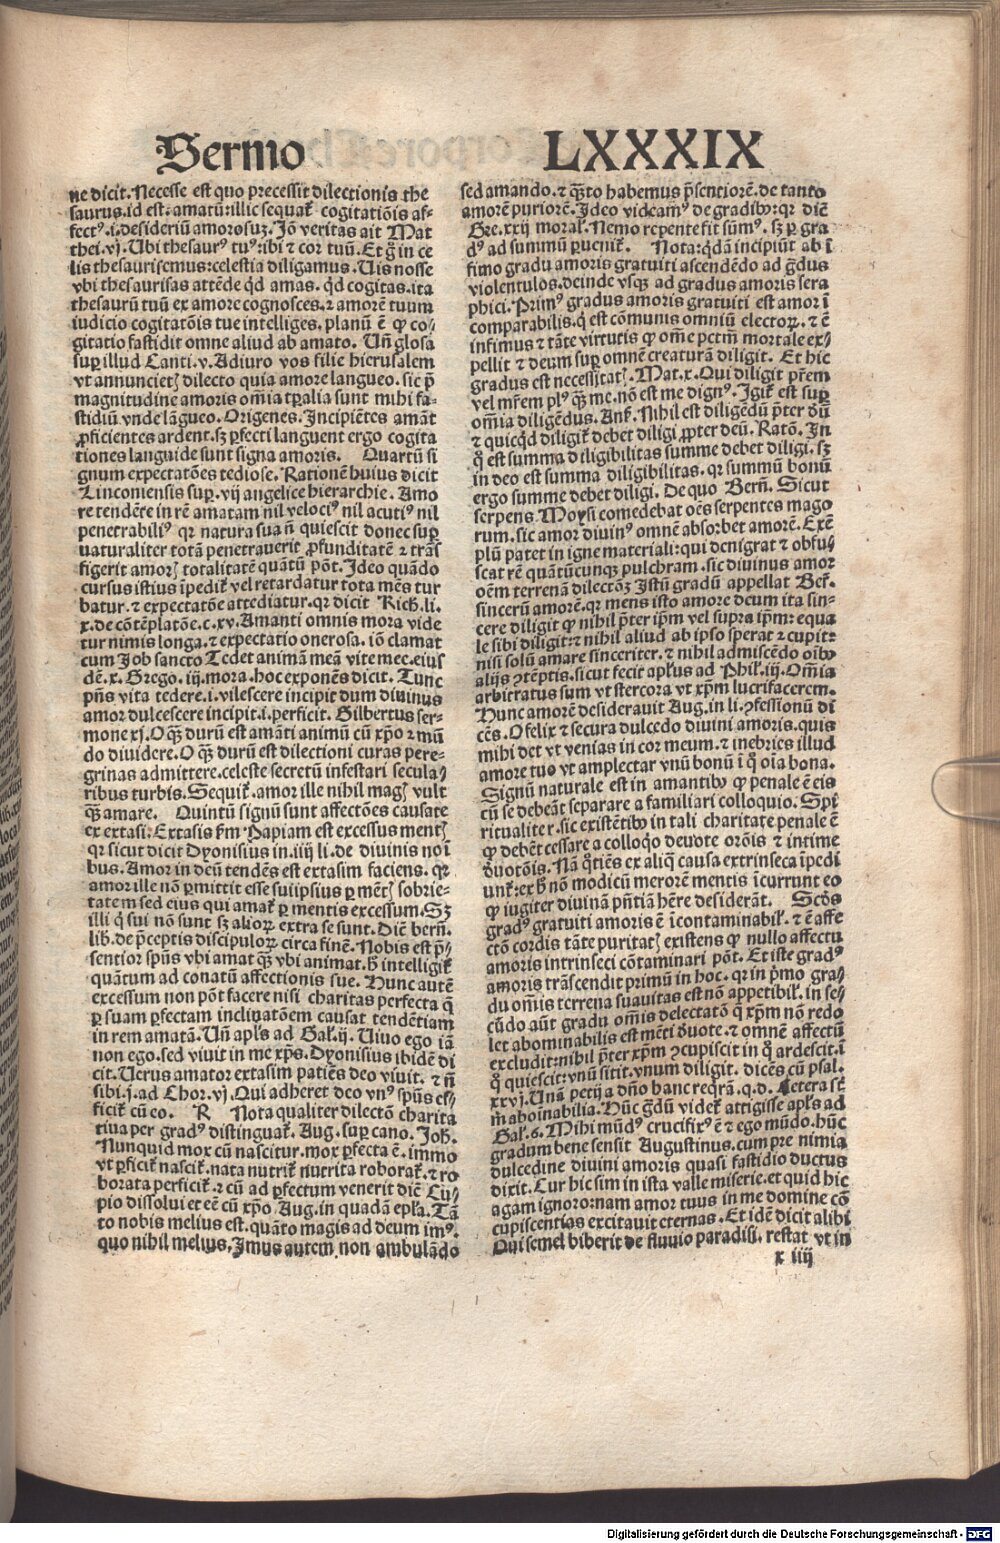 Sermo LXXXIX
ne dicit. Necesse est quo precessit dilectionis the
saurus. id est. amatū: illic sequat᷒ cogitatiōis af-
fectꝰ. i. desideriū amorosuz. Iō veritas ait Mat
thei. vj. Ubi thesaurꝰ tuꝰ: ibi ⁊ cor tuū. Et g̊ in ce
lis thesaurisemus: celestia diligamus. Uis nosse
vbi thesaurisas attēde qd̄ amas. qd̄ cogitas. ita
thesaurū tuū ex amore cognosces. ⁊ amorē tuum
iudicio cogitatōis tue intelliges. planū ē ꝙ co/
gitatio fastidit omne aliud ab amato. Un̄ glosa
suꝑ illud Canti. v. Adiuro vos filie hierusalem
vt annuncietꝭ dilecto quia amore langueo. sic p̄
magnitudine amoris om̄ia tꝑalia sunt mihi fa-
stidiū vnde lāgueo. Origenes. Incipiētes amāt
ꝓficientes ardent. sꝫ ꝑfecti languent ergo cogita
tiones languide sunt signa amoris. Quartū si
gnum expectatōes tediose. Rationē huius dicit
Linconiensis suꝑ. vij angelice hierarchie. Amo
re tendēte in rē amatam nil velociꝰ nil acutiꝰ nil
penetrabiliꝰ qr natura sua n̄ quiescit donec suꝑ
naturaliter totā penetrauerit ꝓfunditatē ⁊ trāſ
figerit amorꝭ totalitatē quātū pōt. Ideo quādo
cursus istius īpedit᷒ vel retardatur tota mēs tur
batur. ⁊ expectatōe attediatur. qr dicit Rich. li.
x. de cōtēplatōe. c. xv. Amanti omnis mora vide
tur nimis longa. ⁊ expectatio onerosa. iō clamat
cum Job sancto Tedet animā meā vite mee. eius
dē. x. Grego. iij. mora. hoc exponēs dicit. Tunc
pn̄s vita tedere. i. vilescere incipit dum diuinus
amor dulcescere incipit. i. perficit. Gilbertus ser-
mone xj. O qꝫ durū est amāti animū cū xp̄o ⁊ mū
do diuidere. O qꝫ durū est dilectioni curas pere-
grinas admittere. celeste secretū infestari secula/
ribus turbis. Sequit᷒. amor ille nihil magꝭ vult
qꝫ amare. Quintū signū sunt affectōes causate
ex extasi. Extasis ẜm Papiam est excessus mentꝭ
qr sicut dicit Dyonisius in. iiij li. de diuinis noī
bus. Amor in deū tendēs est extasim faciens. qr
amor ille nō ꝑmittit esse suiipsius ꝑ mētꝭ sobrie-
tatem sed eius qui amat᷒ ꝑ mentis excessum. Sꝫ
illi q̇ sui nō sunt sꝫ alioꝝ extra se sunt. Diē bern̄.
lib. de p̄ceptis discipuloꝝ circa finē. Nobis est p̄-
sentior spūs vbi amat qꝫ vbi animat. h̄ intelligit᷒
quātum ad conatū affectionis sue. Nunc autē
excessum non pōt facere nisi charitas perfecta q̄
ꝑ suam ꝑfectam inclinatōem causat tendētiam
in rem amatā. Un̄ apl̄s ad Gal̄. ij. Uiuo ego iā
non ego. sed viuit in me xp̄s. Dyonisius ibidē di
cit. Uerus amator extasim patiēs deo viuit. ⁊ n̄
sibi. j. ad Chor. vj. Qui adheret deo vnꝰ spūs ef/
ficit᷒ cū eo. R Nota qualiter dilectō charita
tiua per gradꝰ distinguat᷒. Aug. suꝑ cano. Joh.
Nunquid mox cū nascitur. mox ꝑfecta ē. immo
vt ꝑficit᷒ nascit᷒. nata nutrit᷒ nutrita roborat᷒. ⁊ ro
borata perficit᷒. ⁊ cū ad ꝑfectum venerit diē Cu/
pio dissolui et eē cū xp̄o Aug. in quadā epl̄a. Tā
to nobis melius est. quāto magis ad deum imꝰ.
quo nihil melius. Imus autem non ambulādo
sed amando. ⁊ qͣꝫto habemus p̄sentiorē. de tanto
amorē puriorē. Ideo videamꝰ de gradibꝰ: qr diē
Gre. xxij moral̄. Nemo repente fit sūmꝰ. sꝫ ꝑ gra
dꝰ ad summū ꝑuenit᷒. Nota: q̇dā incipiūt ab ī
fimo gradu amoris gratuiti ascendēdo ad g̊dus
violentulos. deinde vsqꝫ ad gradus amoris sera
phici. Primꝰ gradus amoris gratuiti est amor ī
comparabilis. q̇ est cōmunis omniū electoꝝ. ⁊ ē
infimus ⁊ tāte virtutis ꝙ om̄e pctm̄ mortale ex/
pellit ⁊ deum suꝑ omnē creaturā diligit. Et hic
gradus est necessitatꝭ. Mat. x. Qui diligit pr̄em
vel mr̄em plꝰ qꝫ me. nō est me dignꝰ. Igit᷒ est suꝑ
om̄ia diligēdus. Anſ. Nihil est diligēdū p̄ter dn̄
⁊ quicqd̄ diligit᷒ debet diligi ꝓpter deū. Ratō. In
q̊ est summa diligibilitas summe debet diligi. sꝫ
in deo est summa diligibilitas. qr summū bonū
ergo summe debet diligi. De quo Bern̄. Sicut
serpens Moysi comedebat oēs serpentes mago
rum. sic amor diuinꝰ omnē absorbet amorē. Exē
plū patet in igne materiali: qui denigrat ⁊ obfu/
scat rē quātūcunqꝫ pulchram. sic diuinus amor
oēm terrenā dilectōꝫ Istū gradū appellat Ber̄.
sincerū amorē. qr mens isto amore deum ita sin-
cere diligit ꝙ nihil p̄ter ip̄m vel supra ip̄m: equa
le sibi diligit: ⁊ nihil aliud ab ipso sperat ⁊ cupit:
nisi solū amare sinceriter. ⁊ nihil admiscēdo oībꝰ
alijs ↄtēptis. sicut fecit apl̄us ad Phil̄. iij. Om̄ia
arbitratus sum vt stercora vt xp̄m lucrifacerem.
Hunc amorē desiderauit Aug. in li. ↄfessionū di
cēs. O felix ⁊ secura dulcedo diuini amoris. quis
mihi det vt venias in cor meum. ⁊ inebries illud
amore tuo vt amplectar vnū bonū ī q̊ oīa bona.
Signū naturale est in amantibꝰ ꝙ penale ē eis
cū se debeāt separare a familiari colloquio. Spī
ritualiter. sic existētibꝰ in tali charitate penale ē
ꝙ debēt cessare a colloq̊o deuote orōis ⁊ intime
deuotōis. Nā q̊tiēs ex aliq̄ causa extrinseca īpedi
unt᷒: ex h̊ nō modicū merorē mentis īcurrunt eo
ꝙ iugiter diuinā pn̄tiā hēre desiderāt. Scd̄s
gradꝰ gratuiti amoris ē īcontaminabil̄. ⁊ ē affe
ctō cordis tāte puritatꝭ existens ꝙ nullo affectu
amoris intrinseci cōtaminari pōt. Et iste gradꝰ
amoris trāscendit primū in hoc. qr in p̄mo gra/
du om̄is terrena suauitas est nō appetibil̄. in se/
cūdo aūt gradu om̄is delectatō q̄ xp̄m nō redo
let abominabilis est mēti deuote. ⁊ omnē affectū
excludit: nihil p̄ter xp̄m ↄcupiscit in q̊ ardescit. ī
q̊ quiescit: vnū sitit. vnum diligit. dicēs cū psal.
xxvj. Unā petij a dn̄o hanc reqͣrā. q. d. Cetera sēt
m̄ abominabilia. Hūc g̊dū videt᷒ attigisse apl̄s ad
Gal̄. 6. Mihi mūdꝰ crucifixꝰ ē ⁊ ego mūdo. hūc
gradum bene sensit Augustinus. cum pre nimia
dulcedine diuini amoris quasi fastidio ductus
dixit. Cur hic sim in ista valle miserie. et quid hic
agam ignoro: nam amor tuus in me domine cō
cupiscentias excitauit eternas. Et idē dicit alibi
Qui semel biberit de fluuio paradisi. restat vt in
x iiij
Digitalisierung gefördert durch die Deutsche Forschungsgemeinschaft - DFG